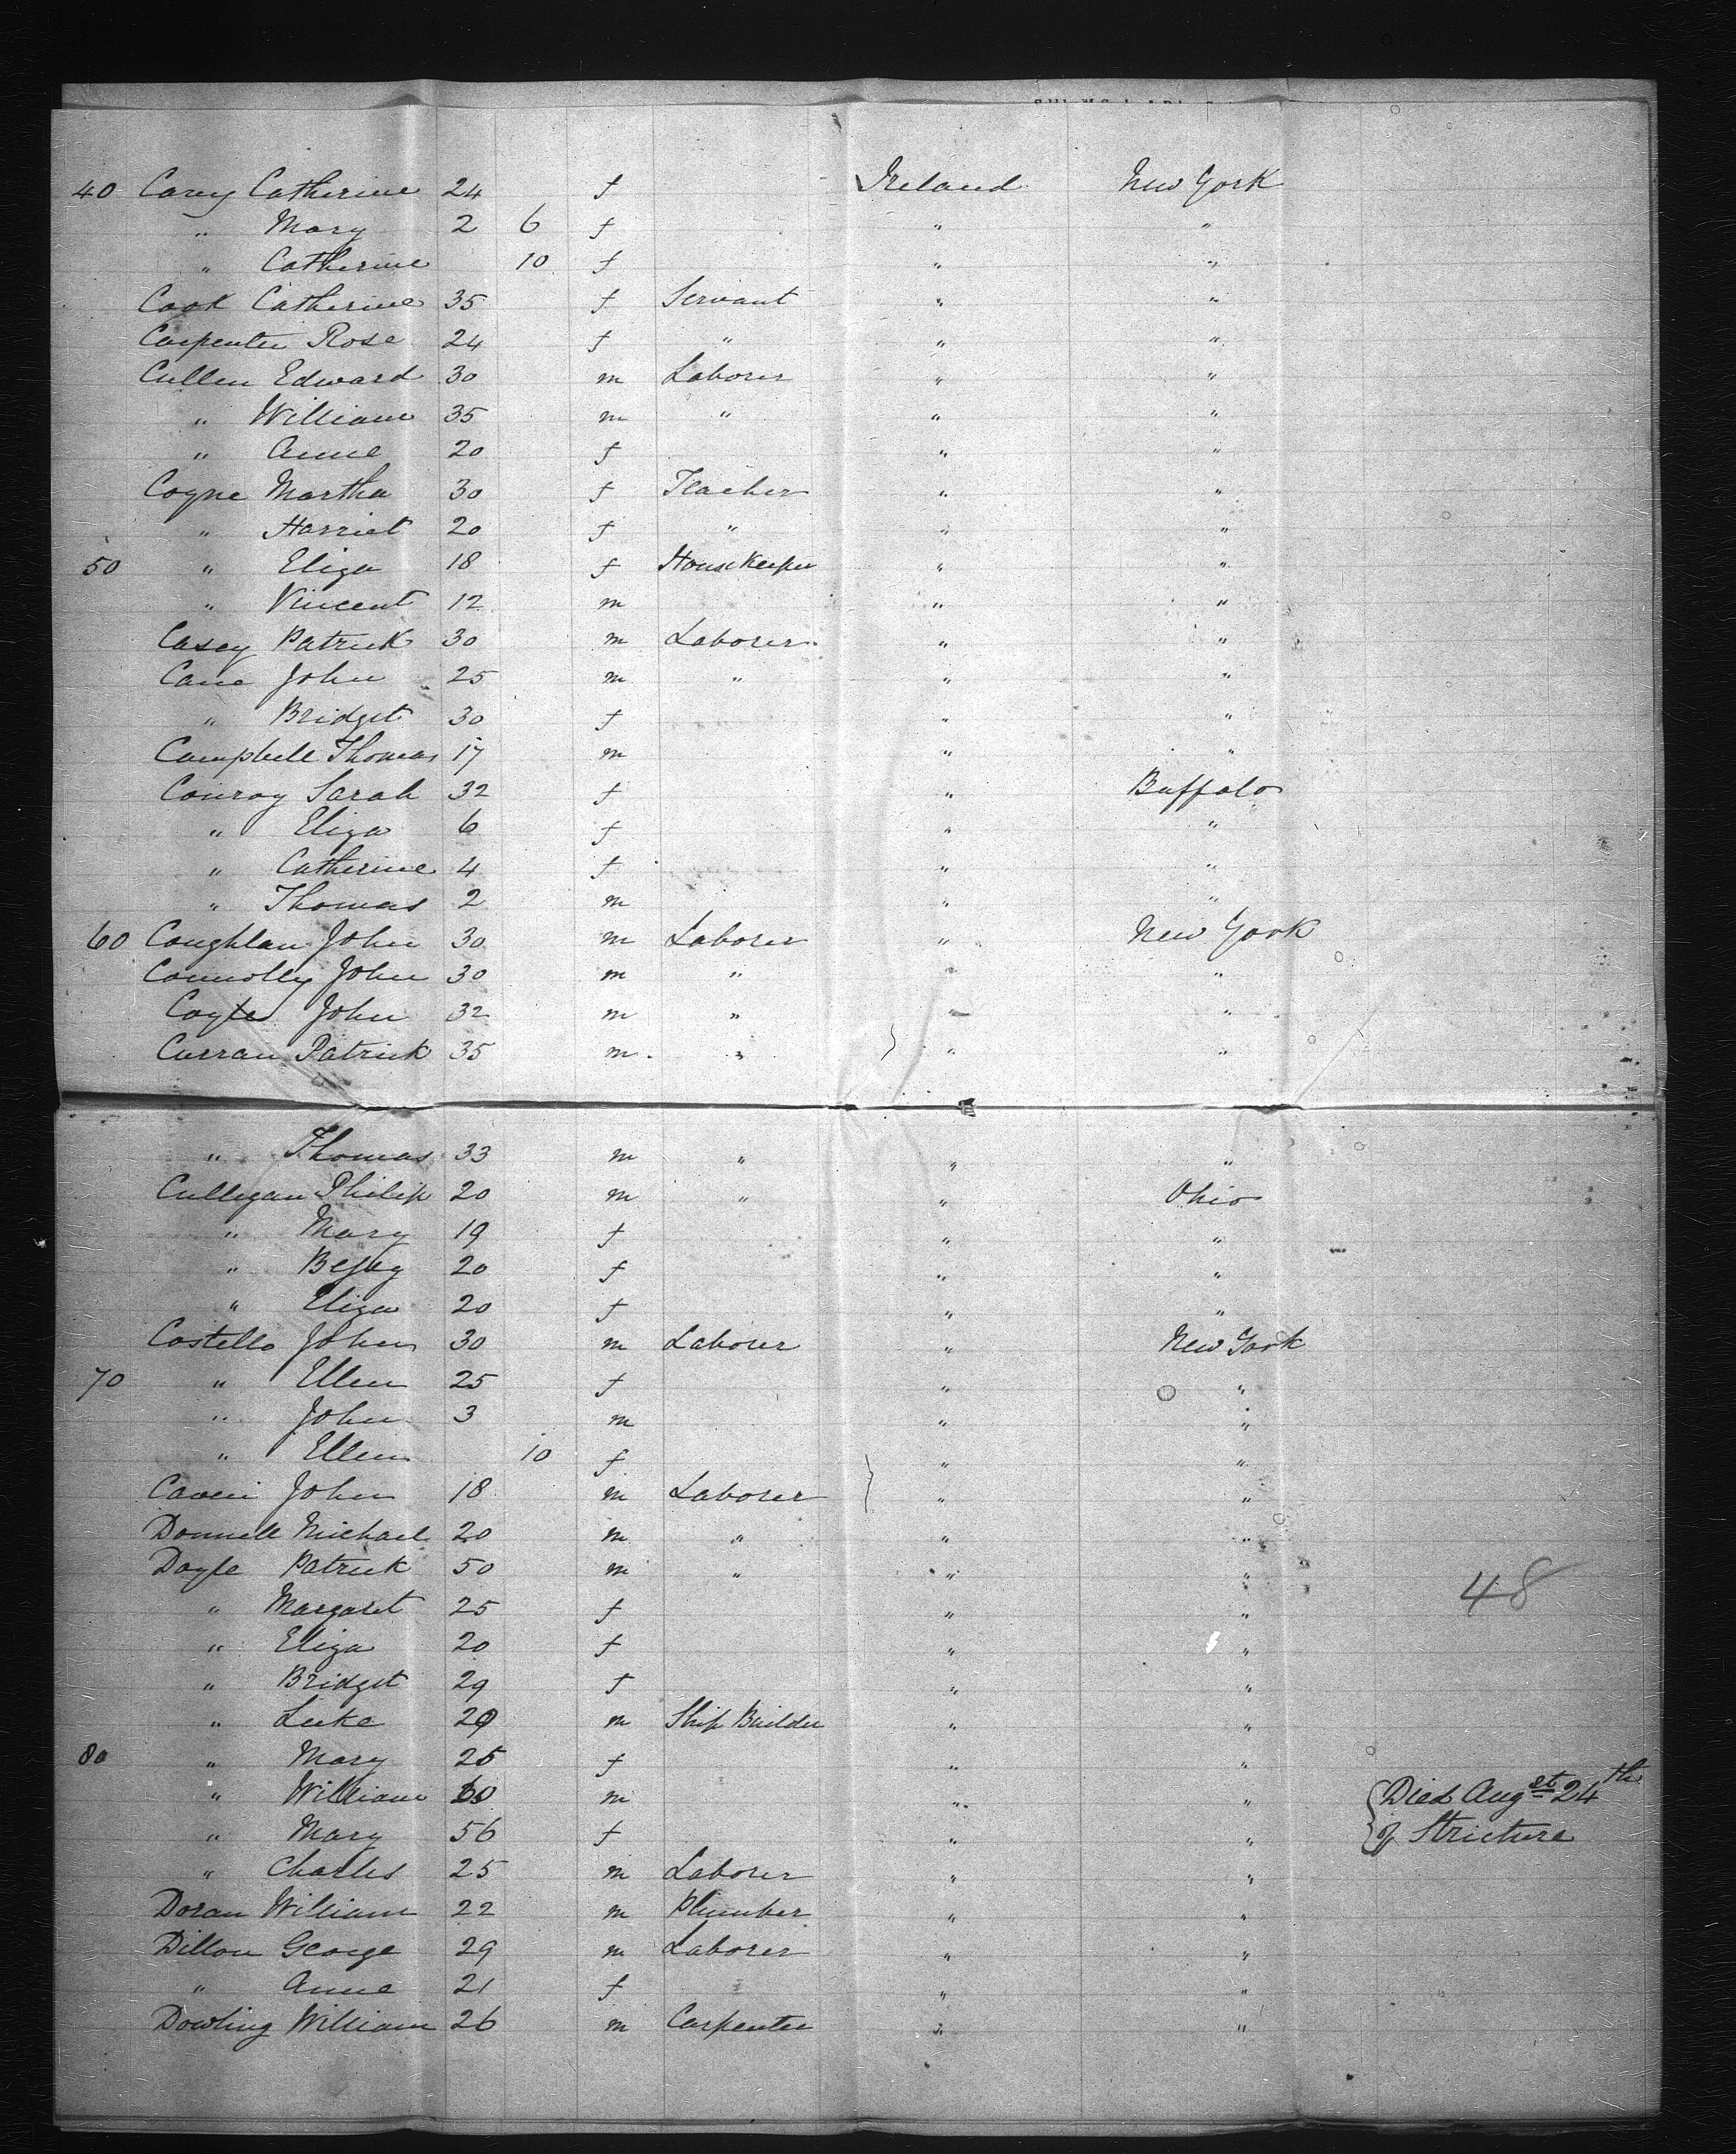 40 Carey Catherine 24 f Ireland New York
" Mary 2 6 f " "
" Catherine 10 f " "
Cook Catherine 35 f Servant " "
Carpenter Rose 24 f " " "
Cullen Edward 30 m Laborer " "
" William 35 m " " "
" Anne 20 f " "
Coyne Martha 30 f Teacher " "
" Harriet 20 f " " "
50 " Eliza 18 f HouseKeeper " "
" Vincent 12 m " "
Casey Patrick 30 m Laborer " "
Cane John 25 m " " "
" Bridget 30 f " "
Campbell Thomas 17 m " "
Conroy Sarah 32 f " Buffalo
" Eliza 6 f " "
" Catherine 4 f " "
" Thomas 2 m " "
60 Coughlan John 30 m Laborer " New York
Connolly John 30 m " " "
Coyle John 32 m " " "
Curran Patrick 35 m " " "
" Thomas 33 m " " "
Culligan Philip 20 m " " Ohio
" Mary 19 f " "
" 20 f " "
" Eliza 20 f " "
Costello John 30 m Laborer " New York
70 " Ellen 25 f " "
" John 3 m " "
" Ellen 10 f " "
John 18 m Laborer " "
Donnell Michael 20 m " " "
Doyle Patrick 50 m " " "
48
" Margaret 25 f " "
" Eliza 20 f " "
" Bridget 29 f " "
" Luke 29 m Ship Builder " "
80 " Mary 25 f " "
" William 60 m " " Died Augst 24th
" Mary 56 f " " of Stricture
" Charles 25 m Laborer " "
Doran William 22 m Plumber " "
Dillon George 29 m Laborer " "
" Anne 21 f " "
Dowling William 26 m Carpenter " "